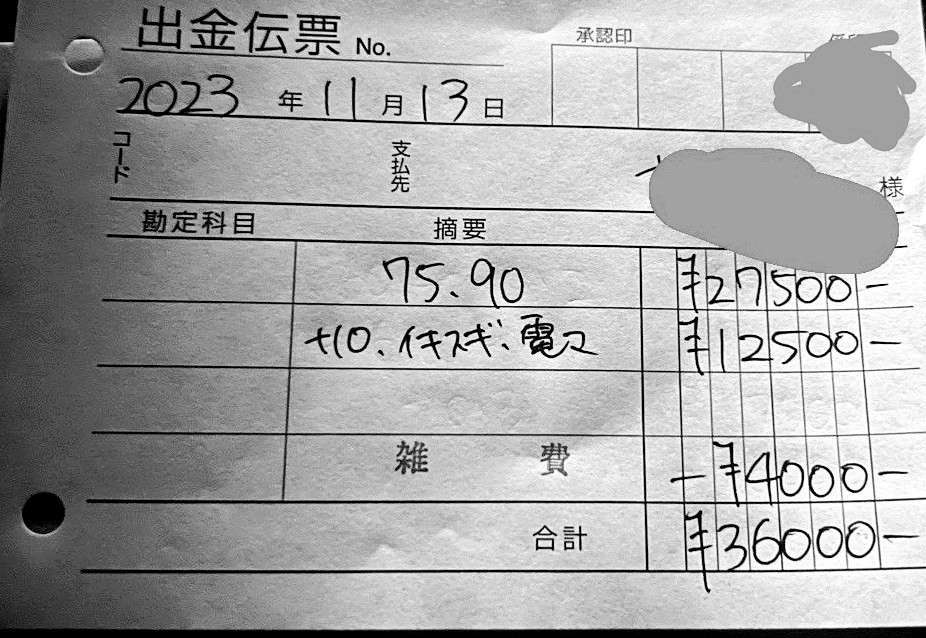 出金伝票 No.
承認印
2023年11月13日
コード 支払先 様
勘定科目 摘要
75、90 ¥27500-
+10、イキスギ、電マ ¥12500-
雑費 -¥4000-
合計 ¥36000-